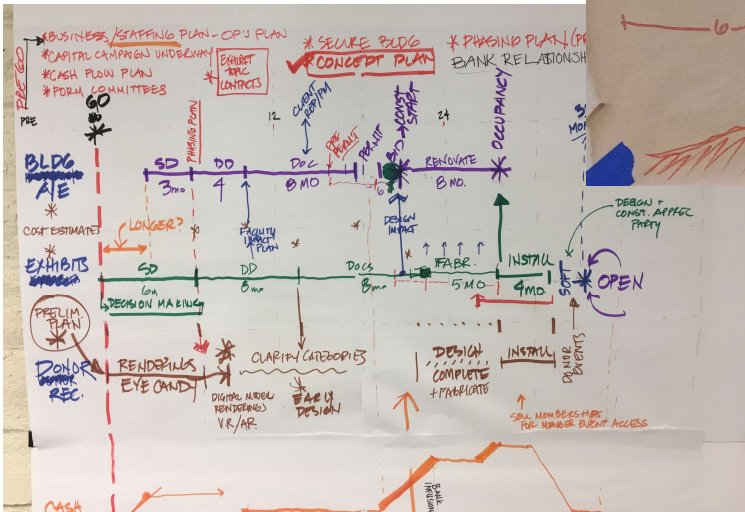 *BUSINESS/STAFFING PLAN-OPS PLAN
*CAPITAL CAMPAIGN UNDERWAY
*CASH FLOW PLAN
*FORM COMMITTEES
PRE GO
EXHIBIT
TOPIC
CONTACTS
* SECURE BLDG
CONCEPT PLAN
* PHASING PLAN
BANK RELATIONSH
6
PRE
GO
PHASING PLAN
12
CLIENT
REP/PM
PRE
PERMIT
PERMIT
BID
CONST
START
24
OCCUPANCY
BLDG
A/E
SD
3mo
DD
4
DOC
8 MO
6
RENOVATE
8 MO.
COST ESTIMATES
LONGER?
FACILITY
IMPACT
PLAN
DESIGN
IMPACT
DESIGN +
CONST. APPREC
PARTY
EXHIBITS
SD
6m
DD
8mo
DOCS
8mo
FABR.
5 MO
INSTALL
4MO.
SOFT
OPEN
DECISION MAKING
PRELIM.
PLAN
DONOR
REC.
RENDERINGS
EYE CANDY
DIGITAL MODEL
RENDERINGS
VR/AR
CLARIFY CATEGORIES
EARLY
DESIGN
DESIGN
COMPLETE
+ FABRICATE
INSTALL
DONOR
EVENTS
SELL MEMBERSHIPS
FOR MEMBER EVENT ACCESS
CASH
BANK
INFUSION